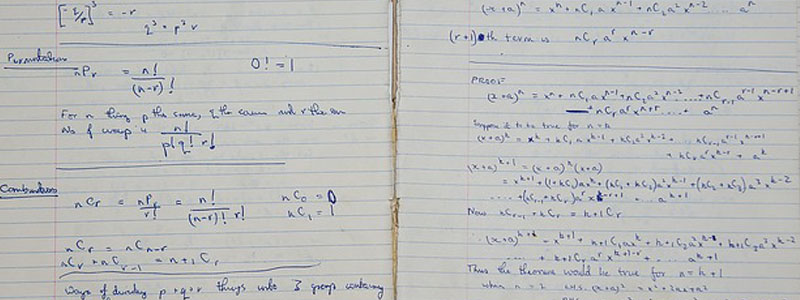 [-q/r]³ = -r
q³ = p³r
Permutations
nPr = n!/(n-r)!   0! = 1
For n things p the same, q the same and r the same
No of ways is n!/p!q!r!
Combinations
nCr = nPr/r! = n!/(n-r)!r!   nC0 = 0
nC1 = 1
nCr = nCn-r
nCr + nCr-1 = n+1Cr
Ways of dividing p+q+r things into 3 groups containing
(x+a)ⁿ = xⁿ + nC1 a xⁿ⁻¹ + nC2 a² xⁿ⁻² ... aⁿ
(r+1)th term is nCr aʳ xⁿ⁻ʳ
PROOF
(x+a)ⁿ = xⁿ + nC1 a xⁿ⁻¹ + nC2 a² xⁿ⁻² ..... + nCr-1 aʳ⁻¹ xⁿ⁻ʳ⁺¹
+ nCr aʳ xⁿ⁺ʳ ..... + aⁿ
Suppose it to be true for n = k
(x+a)ᵏ = xᵏ + kC1 a xᵏ⁻¹ + kC2 a² xᵏ⁻² ... kCr-1 aʳ⁻¹ xᵏ⁻ʳ⁺¹
+ kCr aʳ xᵏ⁻ʳ + aᵏ
(x+a)ᵏ⁺¹ = (x+a)ᵏ(x+a)
= xᵏ⁺¹ + (1+kC1)a xᵏ + (kC1+kC2)a² xᵏ⁻¹ + (kC2+kC3)a³ xᵏ⁻²
.... + (kCr-1+kCr)aʳ xᵏ⁻ʳ⁺¹ ... aᵏ⁺¹
Now kCr-1 + kCr = k+1Cr
(x+a)ᵏ⁺¹ = xᵏ⁺¹ + k+1C1 a xᵏ + k+1C2 a² xᵏ⁻¹ + k+1C3 a³ xᵏ⁻²
.... + k+1Cr aʳ xᵏ⁺¹⁻ʳ ... aᵏ⁺¹
Thus the theorem would be true for n = k+1
when n = 2 RHS. (x+a)² = x²+2ax+a²